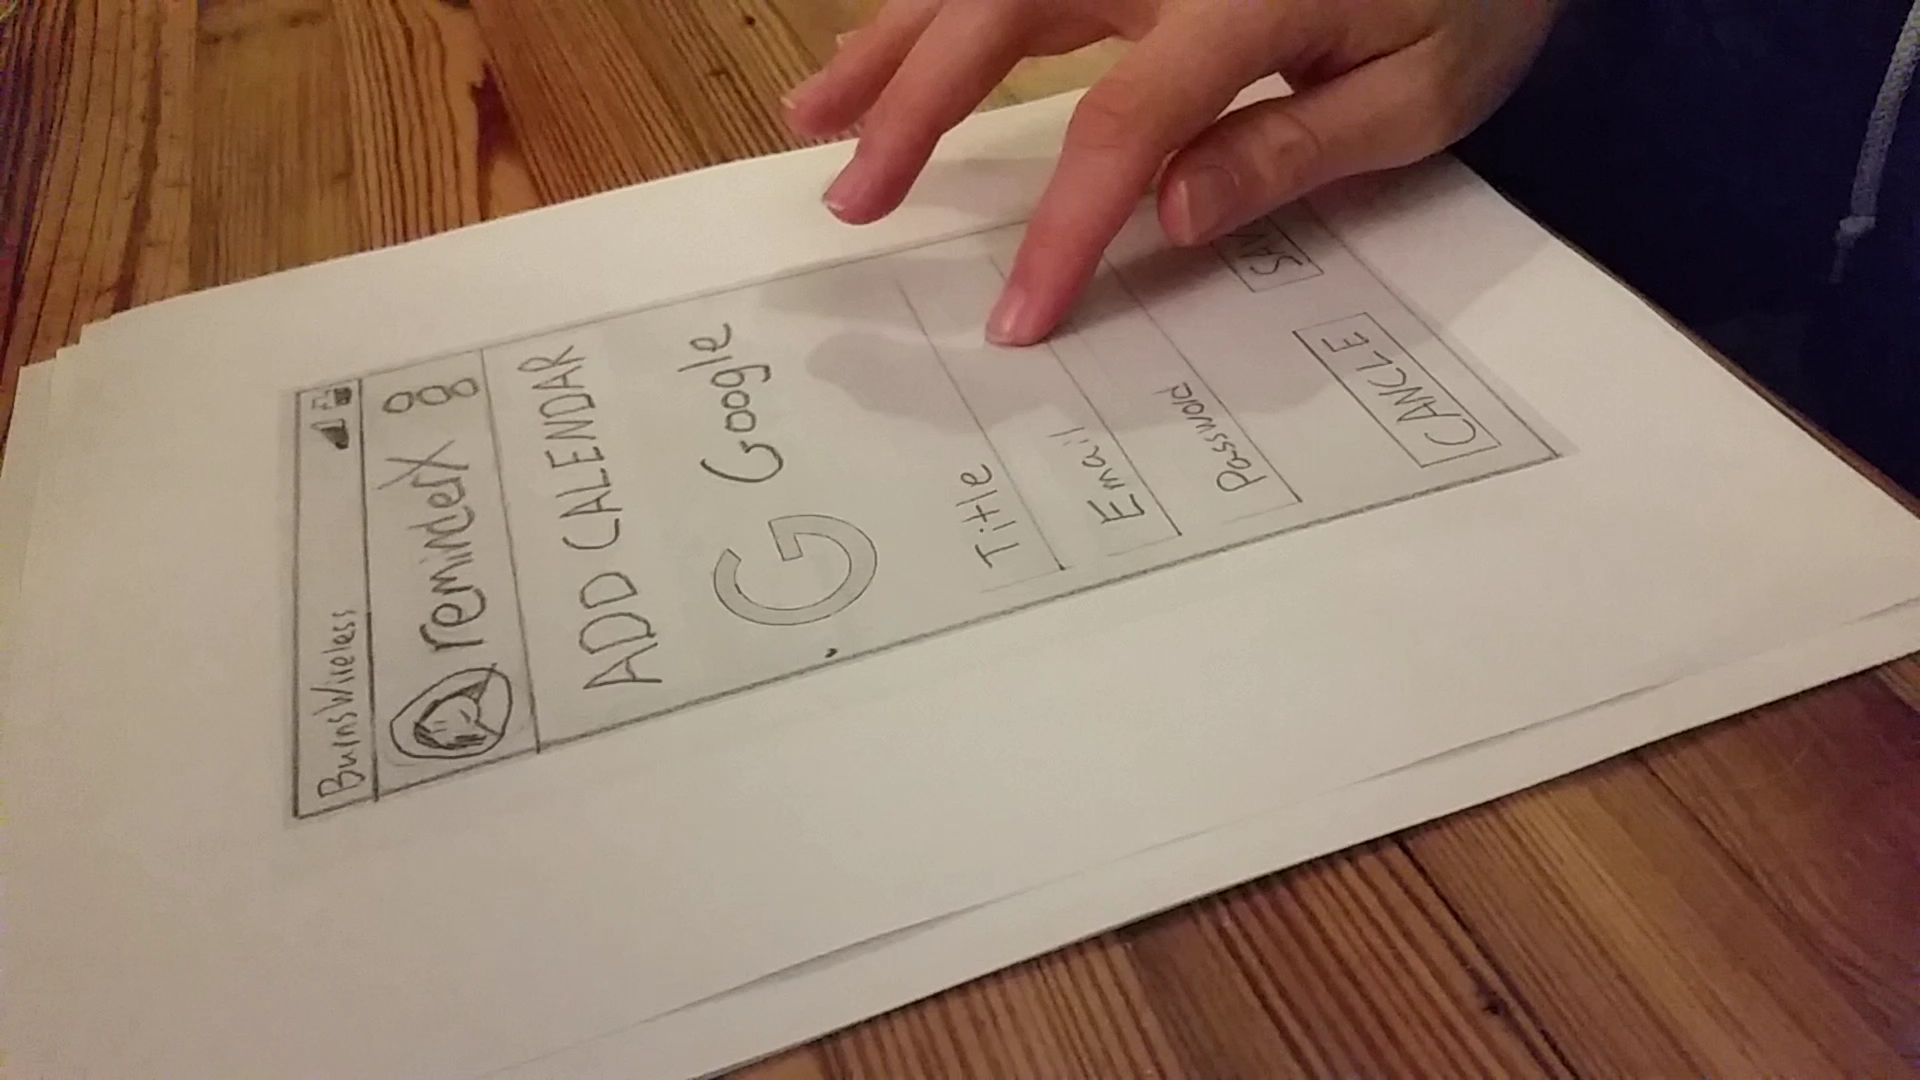 BurnsWireless
reminderX
ADD CALENDAR
G Google
Title
Email
Password
CANCLE